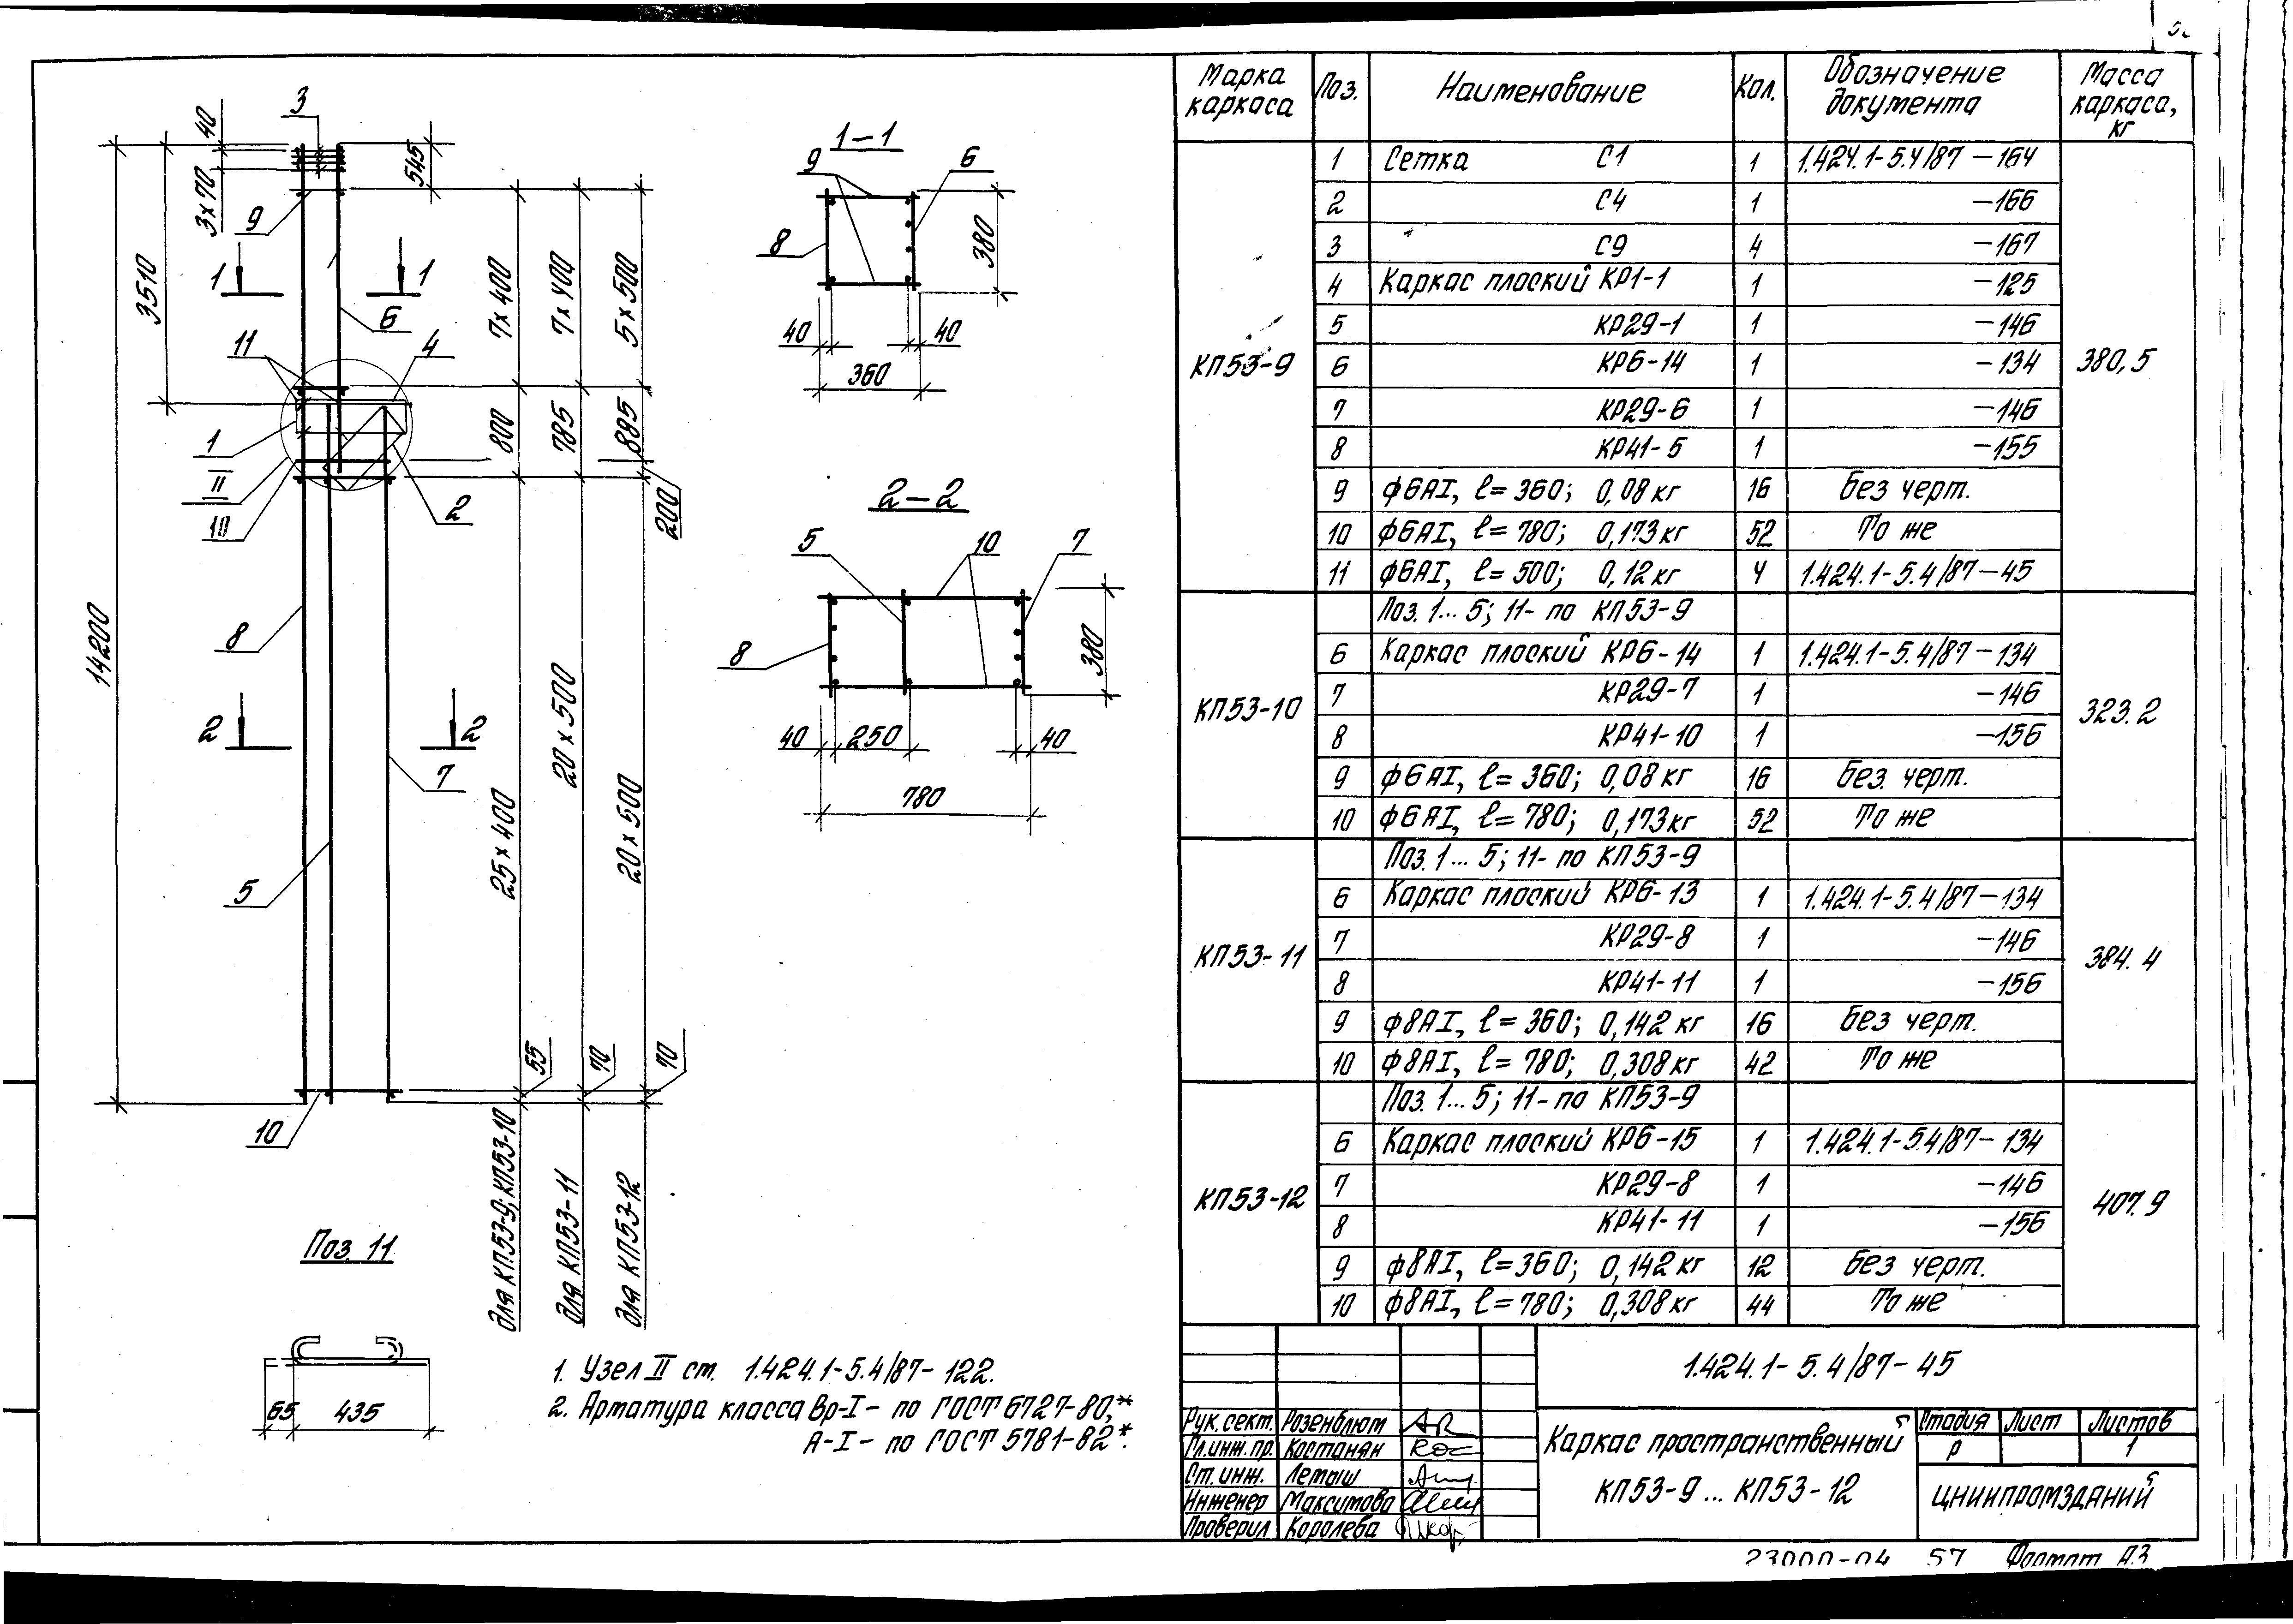 Марка каркаса | Поз. | Наименование | Кол. | Обозначение документа | Масса каркаса, кг
КП53-9 | 380,5
1 | Сетка С1 | 1 | 1.424.1-5.4/87-164
2 | С4 | 1 | -166
3 | С9 | 4 | -167
4 | Каркас плоский КР1-1 | 1 | -125
5 | КР29-1 | 1 | -146
6 | КР6-14 | 1 | -134
7 | КР29-6 | 1 | -146
8 | КР41-5 | 1 | -155
9 | ф6АI, ℓ=360; 0,08кг | 16 | без черт.
10 | ф6АI, ℓ=780; 0,173кг | 52 | То же
11 | ф6АI, ℓ=500; 0,12кг | 4 | 1.424.1-5.4/87-45
КП53-10 | 323.2
Поз. 1... 5; 11- по КП53-9
6 | Каркас плоский КР6-14 | 1 | 1.424.1-5.4/87-134
7 | КР29-7 | 1 | -146
8 | КР41-10 | 1 | -156
9 | ф6АI, ℓ=360; 0,08кг | 16 | без. черт.
10 | ф6АI, ℓ=780; 0,173кг | 52 | То же
КП53-11 | 384.4
Поз. 1... 5; 11- по КП53-9
6 | Каркас плоский КР6-13 | 1 | 1.424.1-5.4/87-134
7 | КР29-8 | 1 | -146
8 | КР41-11 | 1 | -156
9 | ф8АI, ℓ=360; 0,142кг | 16 | без черт.
10 | ф8АI, ℓ=780; 0,308кг | 42 | То же
КП53-12 | 407.9
Поз. 1... 5; 11- по КП53-9
6 | Каркас плоский КР6-15 | 1 | 1.424.1-5.4/87-134
7 | КР29-8 | 1 | -146
8 | КР41-11 | 1 | -156
9 | ф8АI, ℓ=360; 0,142кг | 12 | без черт.
10 | ф8АI, ℓ=780; 0,308кг | 44 | То же
3
40
3×70
545
9
3510
14200
1 1
6
11
4
1
II
10
2
8
2 2
7
5
10
7×400
7×400
5×500
800
785
885
200
25×400
20×500
20×500
55
70
70
для КП53-9, КП53-10
для КП53-11
для КП53-12
1-1
9
6
8
380
40 40
360
2-2
5
10
7
8
380
40 250 40
780
Поз. 11
65 435
1. Узел II см. 1.424.1-5.4/87-122.
2. Арматура класса Вр-I - по ГОСТ 6727-80,*
А-I - по ГОСТ 5781-82*.
1.424.1-5.4/87-45
Рук. сект. Розенблюм
Гл.инж.пр. Костанян
Ст. инж. Летыш
Инженер Максимова
Проверил Королева
Каркас пространственный
КП53-9... КП53-12
Стадия Лист Листов
Р 1
ЦНИИПРОМЗДАНИЙ
23000-04 57 Формат А3